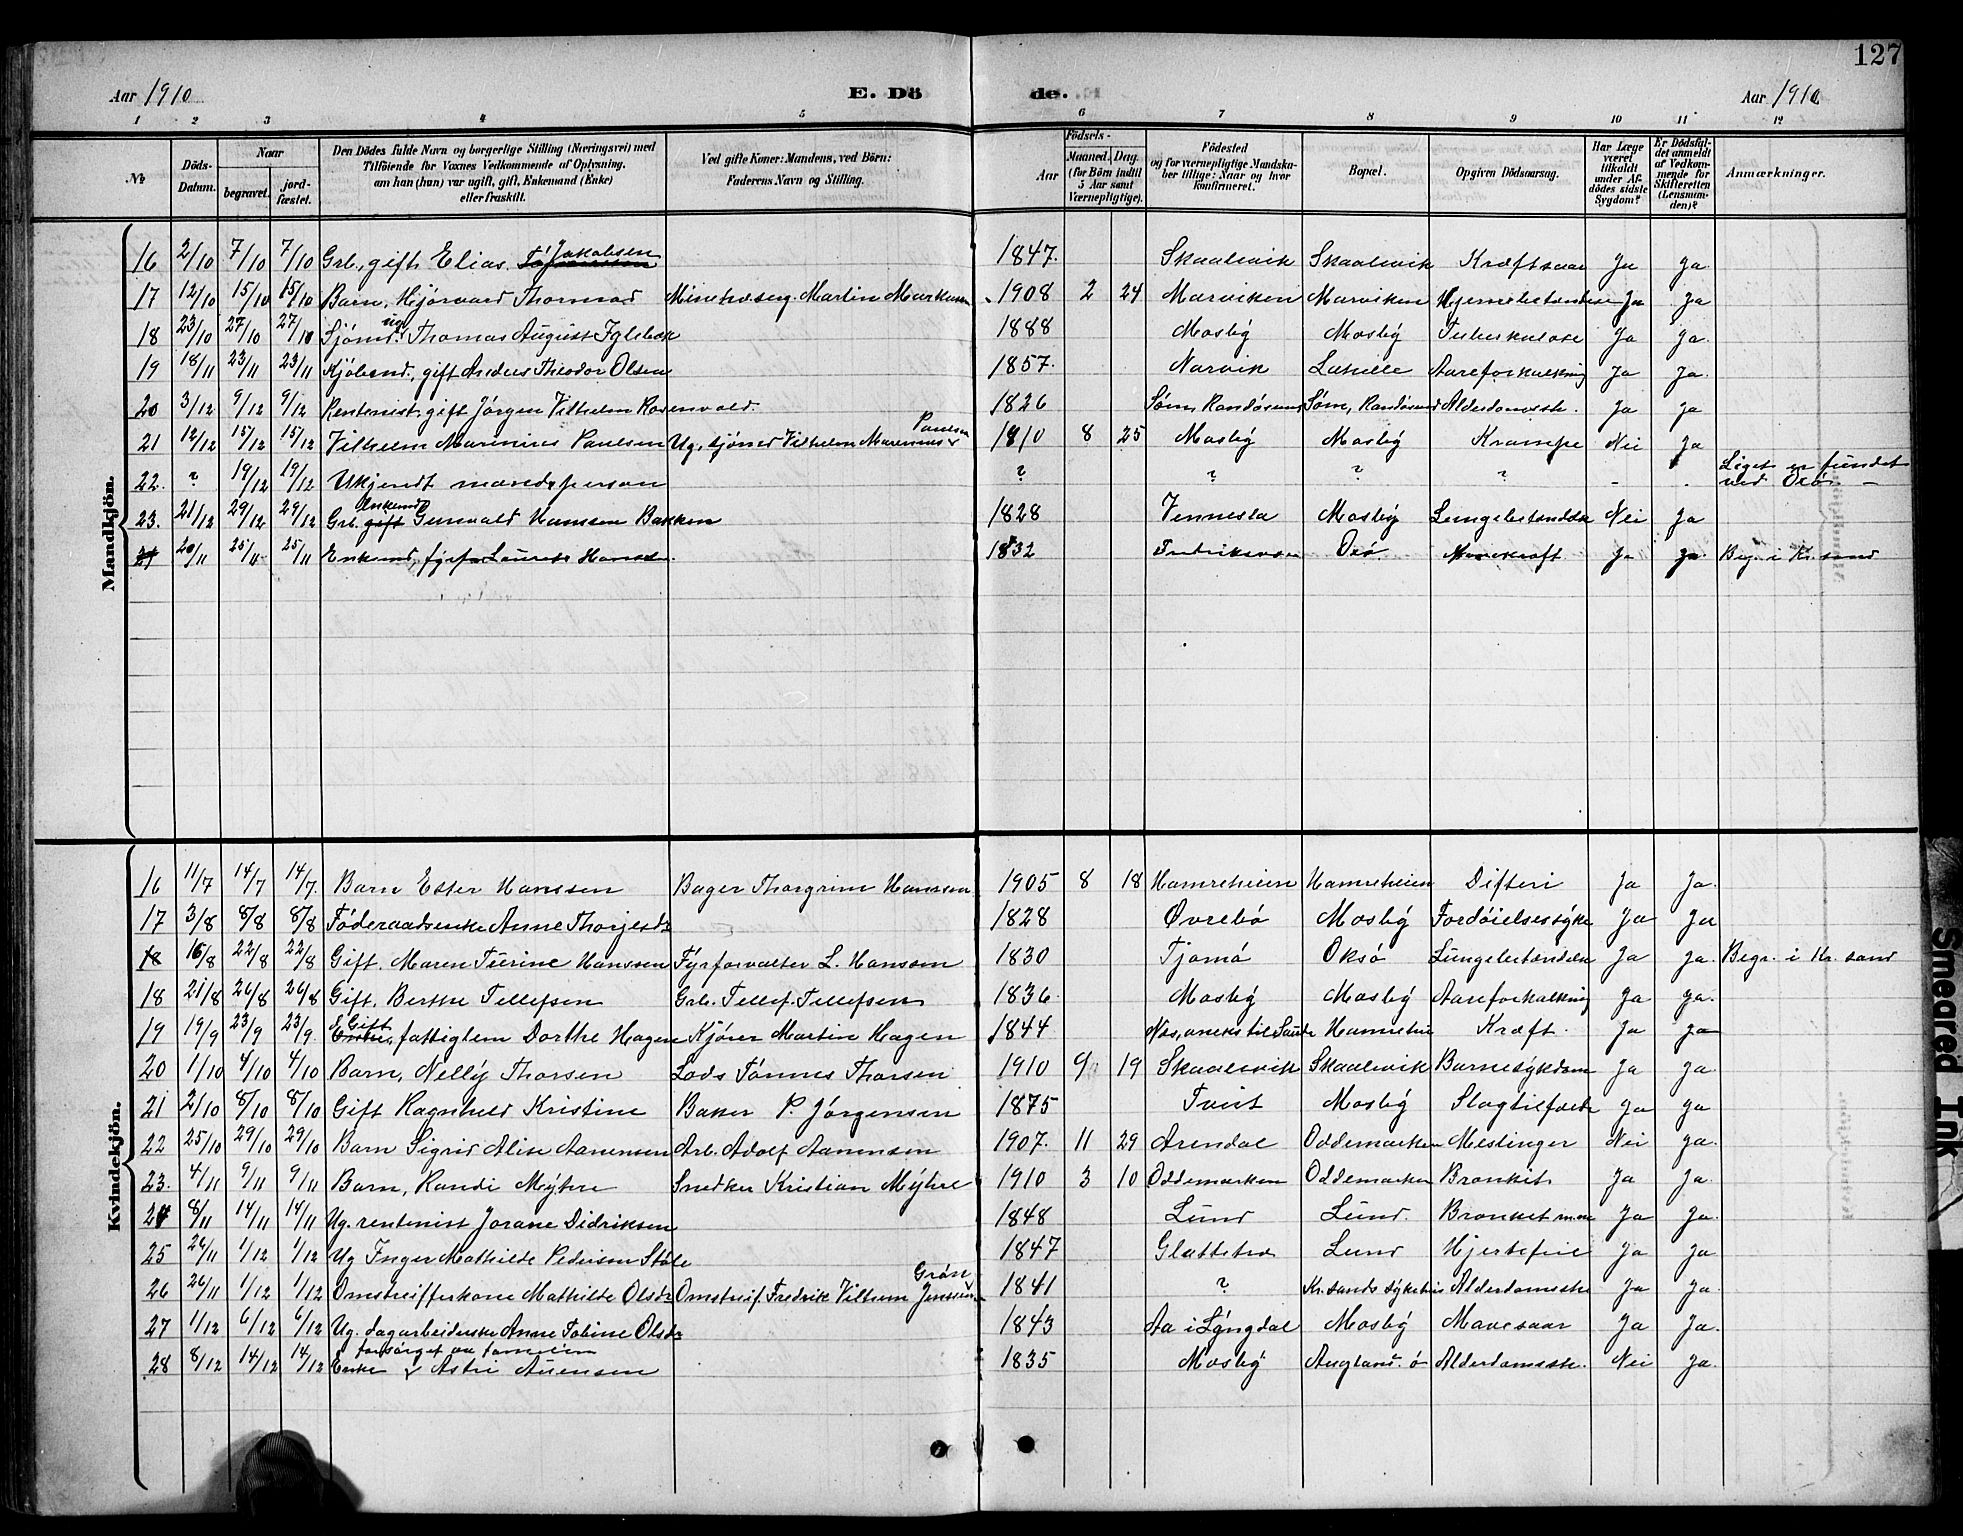 127
Aar 1910 E. Dö de. Aar 1910
1 2 3 4 5 6 7 8 9 10 11 12
№ Döds-Datum. Naar begravet. jordfæstet. Den Dödes fulde Navn og borgerlige Stilling (Næringsvei) med Tilföiende for Voxnes Vedkommende af Oplysning, om han (hun) var ugift, gift, Enkemand (Enke) eller fraskilt. Ved gifte Koner: Mandens, ved Börn: Faderens Navn og Stilling. Födsels- Aar Maaned. Dag. (for Börn indtil 5 Aar samt Værnepligtige). Födested og for værnepligtige Mandskaber tillige: Naar og hvor konfirmeret. Bopæl. Opgiven Dödsaarsag. Har Læge været tilkaldt under Afdödes sidste Sygdom? Er Dödsfaldet anmeldt af Vedkommende for Skifteretten (Lensmanden)? Anmærkninger.
Mandkjön.
16 2/10 7/10 7/10 Grb., gift Elias Jakobsen 1847. Skaalevik Skaalevik Kræftsaar Ja Ja
17 12/10 15/10 15/10 Barn, Hjörvard Thormod Martin Markussen 1908 2 24 Marviken Marviken Hjernebetændelse Ja Ja
18 23/10 27/10 27/10 Sjömd. ug. Thomas August Iglebæk 1888 Mosbÿ Mosbÿ Tuberkulose Ja Ja.
19 18/11 23/11 23/11 Kjöbmd., gift Anders Theodor Olsen 1857. Narvik Lahelle Aareforkalkning Ja Ja.
20 3/12 9/12 9/12 Rentenist, gift Jörgen Vilhelm Rosenvold. 1826 Söm, Randösund Söm, Randösund Alderdomssk. Ja Ja
21 12/12 15/12 15/12 Vilhelm Marinius Paulsen Ug. sjömd Vilhelm Marinius Paulsen 1910 8 25 Mosbÿ Mosbÿ Krampe Nei Ja
22. ? 19/12 19/12 Ukjendt mandsperson ? ? ? ? - . Liget er fundet ved Oxö -
23. 21/12 29/12 29/12 Grb. gift Enkemd Gunvald Hanssen Bakken 1828 Vennesla Mosbÿ Lungebetændelse Nei Ja
24 20/11 25/11 25/11 Enkemd, Laurits Hanssen. 1832 Fredriksværn Oxö Mavekræft Ja Ja. Beg. i Kr.sand
Kvindekjön.
16 11/7 14/7 14/7. Barn Ester Hanssen Bager Thorgrim Hanssen 1905 8 18 Hamreheien Hamreheien Difteri Ja Ja.
17 3/8 8/8 8/8 Föderaadsenke Anne Thorjesdr 1828 Øvrebö Mosbÿ Fordöielsessÿke Ja Ja
18 16/8 22/8 22/8 Gift, Maren Turine Hanssen Fÿrforvalter L. Hanssen 1830 Tjömö Oksö Lungebetændelse Ja Ja. Begr. i Kr. sand
18 21/8 26/8 26/8 Gift, Berthe Tellefsen Grb. Tellef Tellefsen 1836. Mosbÿ Mosbÿ Aareforkalkning Ja Ja.
19 19/9 23/9 23/9. Gift Enke, fattiglem Dorthe Hagen Kjörer Martin Hagen 1844 Nes, aneks til Hamrehei Kræft. Ja Ja
20 1/10 4/10 4/10 Barn, Nellÿ Thorsen Lods Tönnes Thorsen 1910 9 19 Skaalevik Skaalevik Barnesÿkdom Ja Ja
21 2/10 8/10 8/10 Gift Ragnhild Kristine Baker P. Jörgensen 1875 Tveit Mosbÿ Slagtilfælde Ja Ja
22 25/10 29/10 29/10 Barn Sigrid Alise Aanensen Arb. Adolf Aanensen 1907. 11 29 Arendal Oddemarken Meslinger Nei Ja.
23. 4/11 9/11 9/11 Barn, Randi Mÿhre Snedker Kristian Mÿhre 1910 3 10 Oddemarken Oddemarken Bronkit Ja Ja.
24 8/11 14/11 14/11 Ug. rentenist Jorane Didriksen 1848 Lund Lund. Bronkit m.m Ja Ja.
25 26/11 1/12 1/12 Ug Inger Mathilde Pedersen Stöle 1847 Glattetre Lund Hjertefeil Ja Ja
26 26/11 1/12 1/12 Omstreifferkone Mathilde Olsdr Omstreif. Fredrik Vilhem Jenssen Grön 1841 ? Kr.sands sÿkehus Alderdomssk Ja Ja.
27 1/12 6/12 6/12 Ug. dagarbeiderske Anne Tobine Olsdr 1843 Aa i Lÿngdal Mosbÿ Mavesaar Ja Ja.
28 8/12 14/12 14/12 Enke forsörget av familien Astri Auensen 1835 Mosbÿ Augland. ö Alderdomssk. Nei Ja.
Smeared Ink